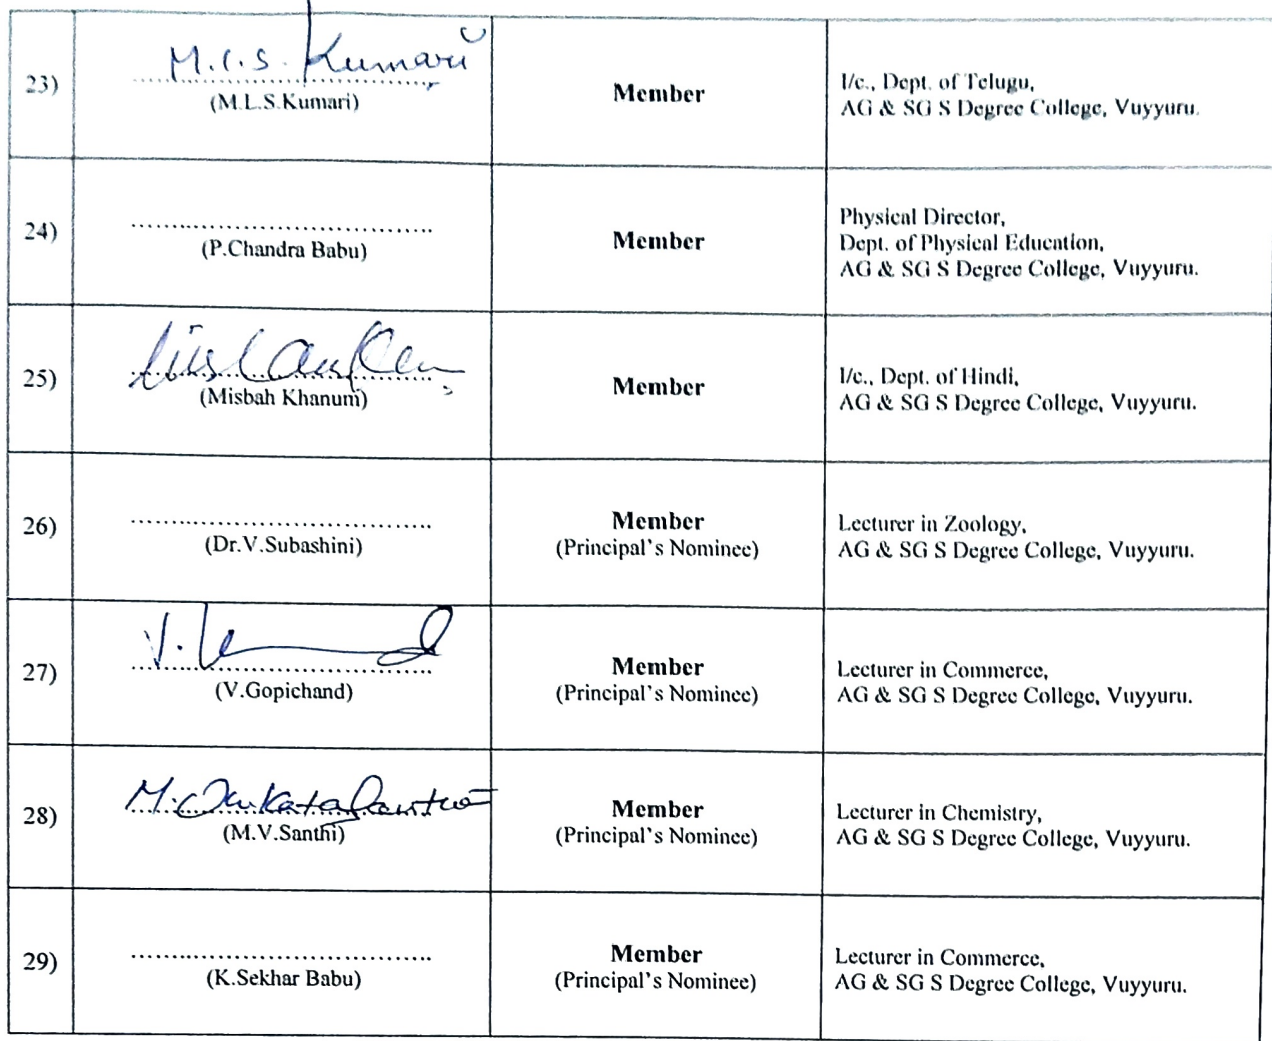 23)
M.L.S. Kumari
....................................
(M.L.S.Kumari)
Member
I/c., Dept. of Telugu,
AG & SG S Degree College, Vuyyuru.
24)
....................................
(P.Chandra Babu)
Member
Physical Director,
Dept. of Physical Education,
AG & SG S Degree College, Vuyyuru.
25)
....................................
(Misbah Khanum)
Member
I/c., Dept. of Hindi,
AG & SG S Degree College, Vuyyuru.
26)
....................................
(Dr.V.Subashini)
Member
(Principal's Nominee)
Lecturer in Zoology,
AG & SG S Degree College, Vuyyuru.
27)
....................................
(V.Gopichand)
Member
(Principal's Nominee)
Lecturer in Commerce,
AG & SG S Degree College, Vuyyuru.
28)
....................................
(M.V.Santhi)
Member
(Principal's Nominee)
Lecturer in Chemistry,
AG & SG S Degree College, Vuyyuru.
29)
....................................
(K.Sekhar Babu)
Member
(Principal's Nominee)
Lecturer in Commerce,
AG & SG S Degree College, Vuyyuru.